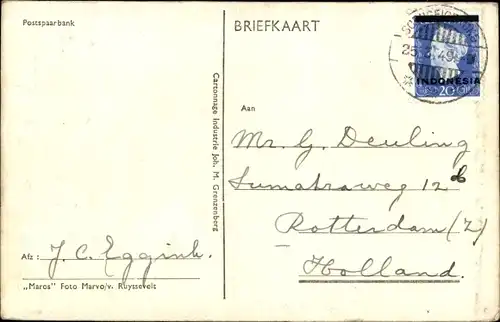 Postspaarbank
BRIEFKAART
INDONESIA
20
Cartonnage Industrie Joh. M. Grenzenberg
Aan
Mr. G. Deuling
Sumatraweg 12 b
Rotterdam (Z)
Holland.
Afz: J. C. Eggink.
„Maros" Foto Marvo/v. Ruyssevelt